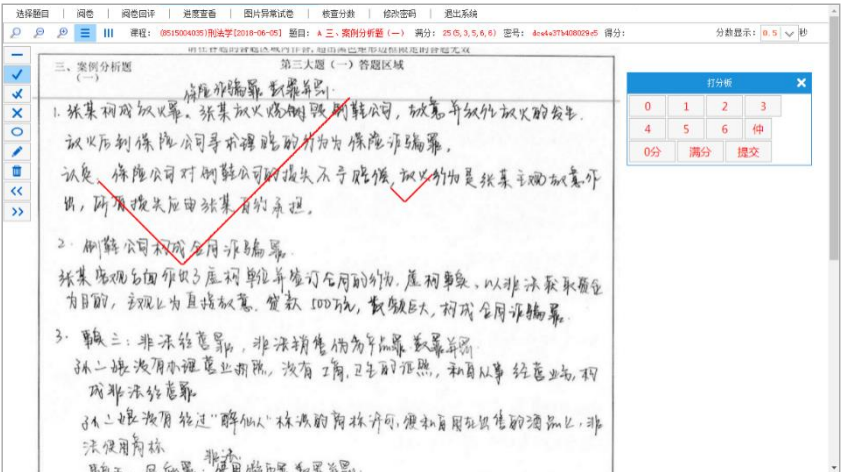 选择题目 | 阅卷 | 阅卷回评 | 进度查看 | 图片异常试卷 | 核查分数 | 修改密码 | 退出系统
课程: (8515004035)刑法学[2018-06-05] 题目: A 三、案例分析题(一) 满分: 25(5,3,5,6,6) 密号: dce4e37b408029c5 得分:
分数显示: 0.5 秒
三、案例分析题
(一)
第三大题(一)答题区域
保险诈骗罪 数罪并罚.
1. 张某构成放火罪。张某放火烧制鞋公司, 故意并放任放火的发生.
放火后到保险公司寻求理赔的行为为保险诈骗罪。
保险公司对制鞋公司的损失不予赔偿, 放火行为是张某主观故意作
出, 所有损失应由张某自行承担。
2. 制鞋公司构成合同诈骗罪
张某客观方面作出了虚构单位并签订合同的行为. 虚构事实, 以非法获取资金
为目的, 主观上为直接故意. 贷款 500万元, 数额巨大, 构成合同诈骗罪.
3. 事实三: 非法经营罪, 非法销售伪劣产品罪. 数罪并罚
孙二娘没有办理营业执照, 没有工商,卫生的证照, 私自从事经营业务, 构
成非法经营罪
孙二娘没有经过"醉仙人"标识的商标许可, 便私自用在出售的酒品上, 非
法使用商标
打分板
0 1 2 3
4 5 6 仲
0分 满分 提交